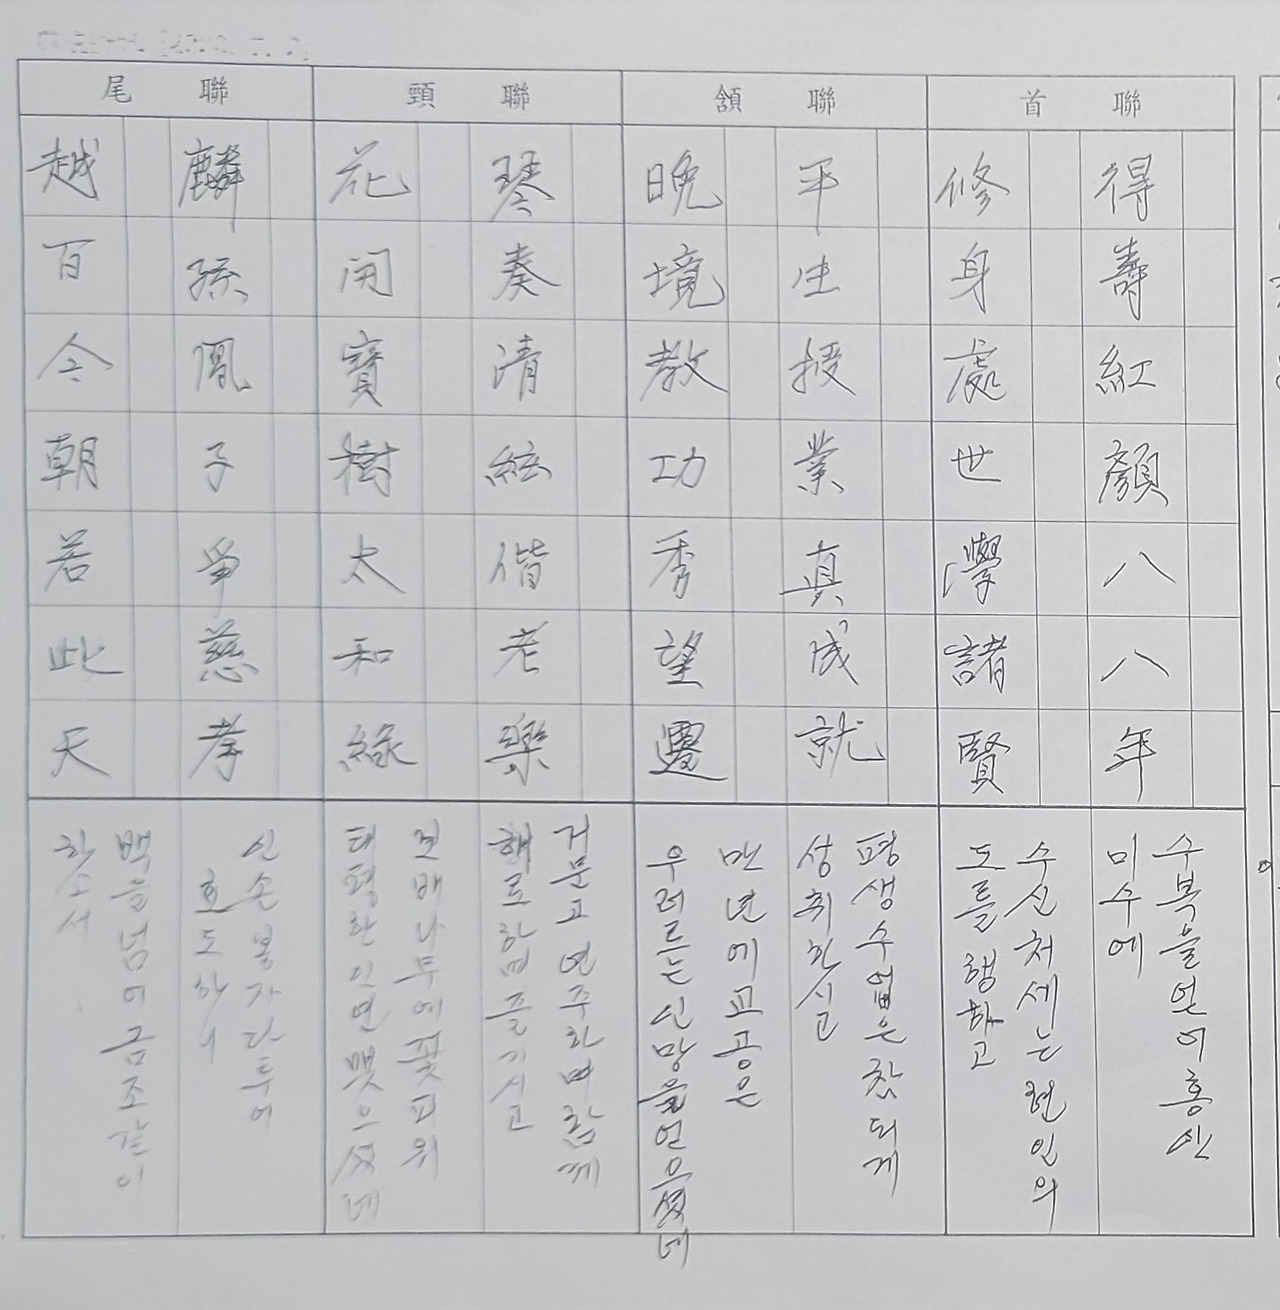 首聯
得壽紅顏八八年
修身處世學諸賢
頷聯
平生授業真成就
晩境教功秀望遷
頸聯
琴奏清絃偕老樂
花開寶樹太和緣
尾聯
麟孫鳳子爭慈孝
越百今朝若此天
수복을 얻어 홍안
미수에
수신처세는 현인의
도를 행하고
평생수업은 참되게
성취하시고
만년에 교공은
우러르는 신망을 얻으셨네
거문고 연주하며 함께
해로하며 즐기시고
보배나무에 꽃피워
태평한 인연 맺으셨네
신손봉가 다투어
효도하니
백을 넘어 금조같이
하소서